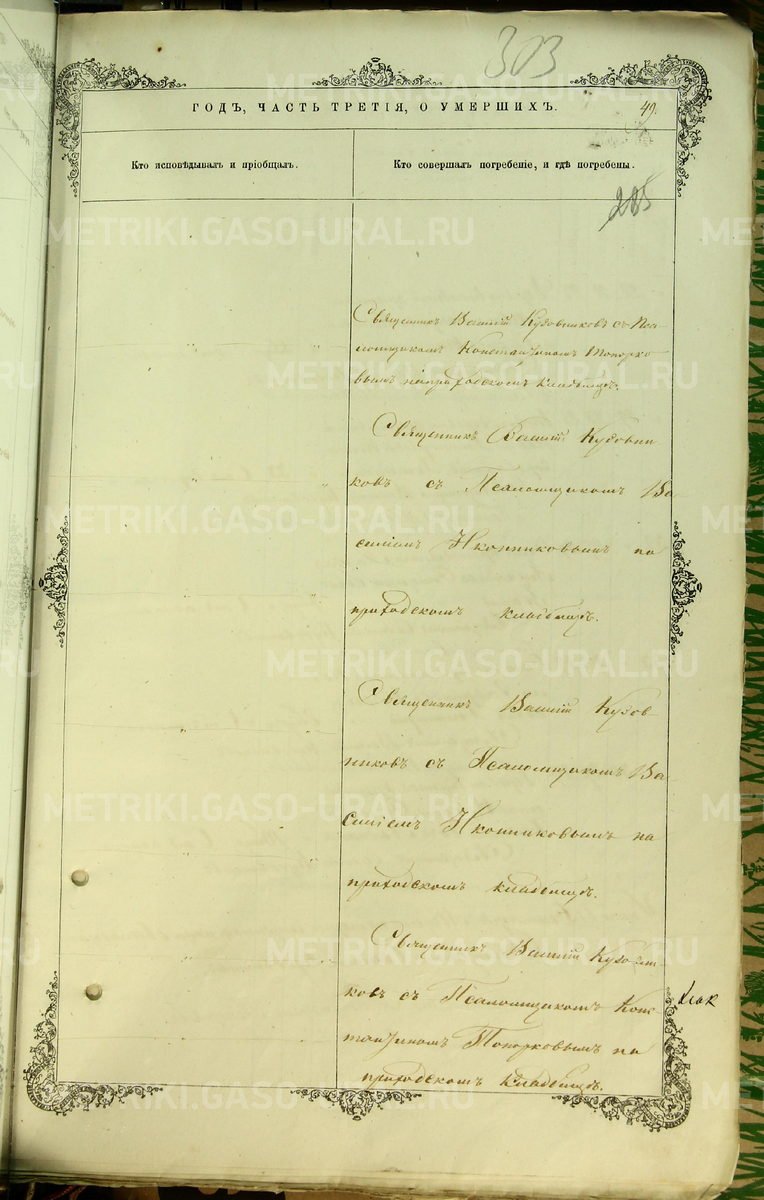 303
ГОДЪ, ЧАСТЬ ТРЕТІЯ, О УМЕРШИХЪ.
49.
Кто исповѣдывалъ и пріобщалъ.
Кто совершалъ погребеніе, и гдѣ погребены.
285
Священникъ Василій Кудовниковъ съ Пса-
ломщикомъ Константиномъ Топорко-
вымъ на приходскомъ кладбищѣ.
Священникъ Василій Кудовни
ковъ съ Псаломщикомъ Ва
силіемъ Иконниковымъ на
приходскомъ кладбищѣ.
Священникъ Василій Кудов
никовъ съ Псаломщикомъ Ва-
силіемъ Иконниковымъ на
приходскомъ кладбищѣ.
Священникъ Василій Кудовни
ковъ съ Псаломщикомъ Конс
тантиномъ Топорковымъ на
приходскомъ кладбищѣ.
METRIKI.GASO-URAL.RU